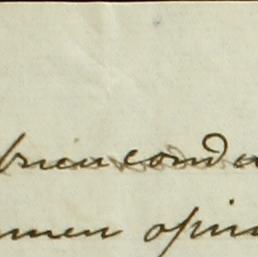 brica condu
men opin